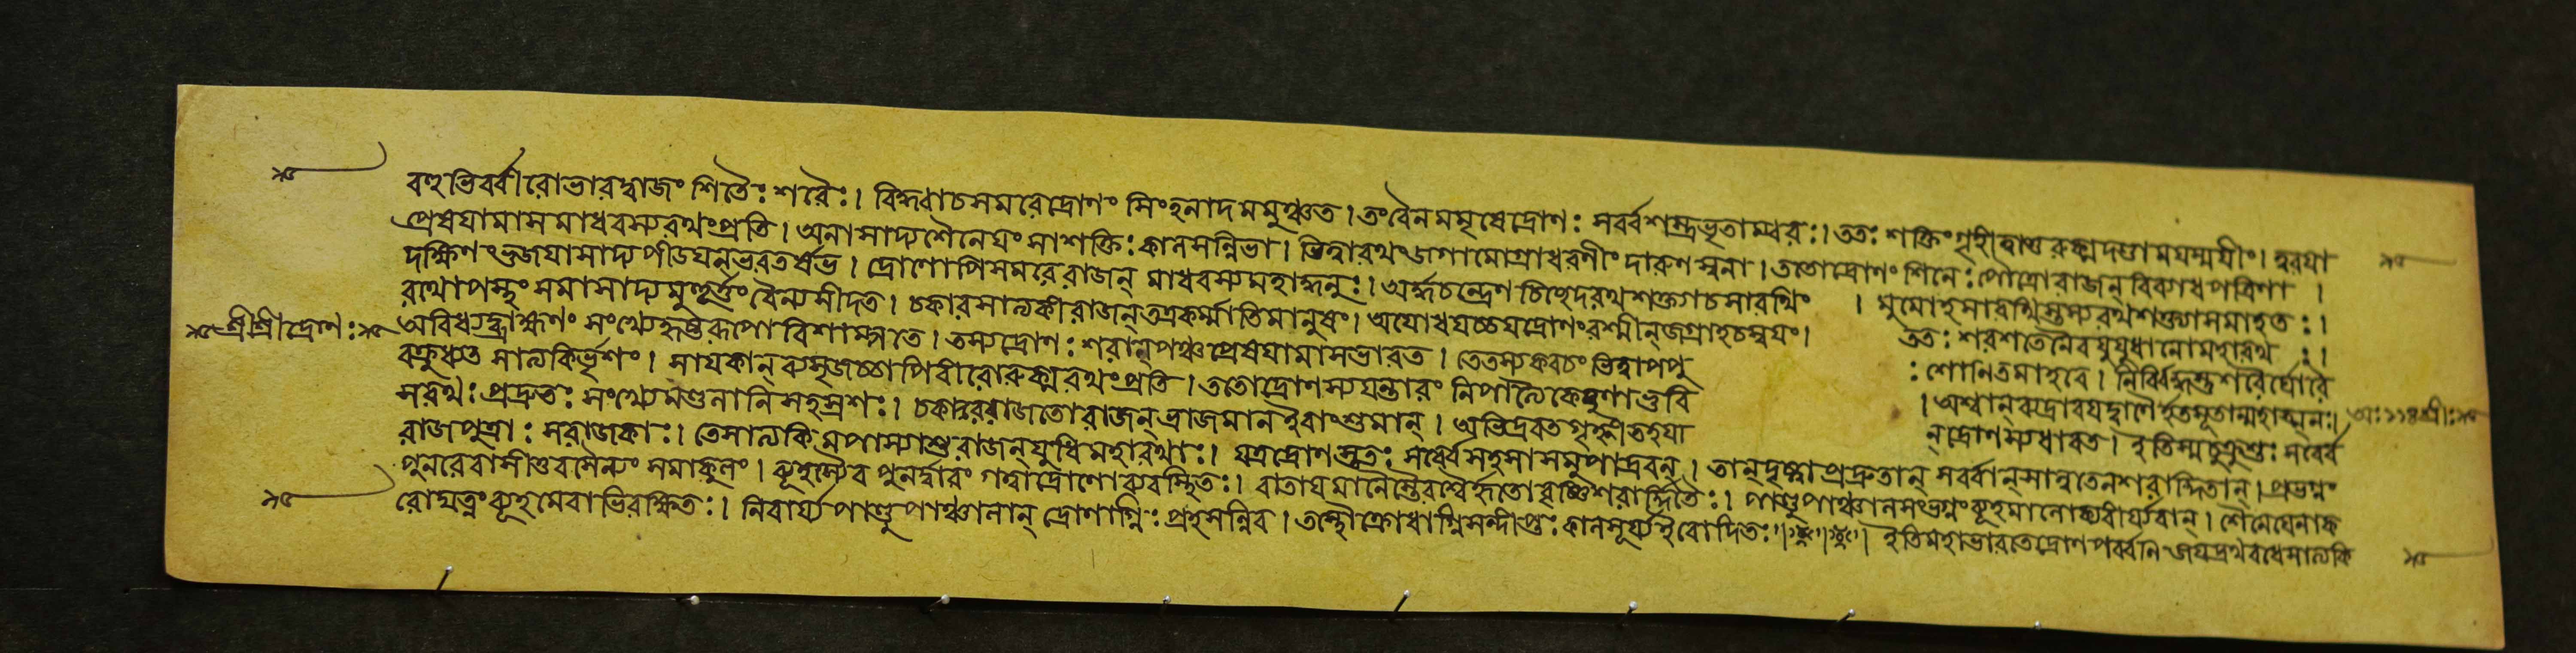 বহুভির্ব্বীরোভারদ্বাজং শিতৈঃ শরৈঃ। বিব্যধাচসমরেদ্রোণং সিংহনাদমমুঞ্চত। তংবৈনমমৃষেদ্রোণঃ সর্ব্বশস্ত্রভৃতাম্বরঃ। ততঃ শক্তিংগৃহীত্বাশুরুক্মদণ্ডাময়স্ময়ীং। ত্বরয়া
প্রেষয়ামাসমাধবস্যরথংপ্রতি। অনাসাদ্যশৈনেয়ং সাশক্তিঃকালসন্নিভা। ভিত্বারথংজগামোগ্রাধরণীং দারুণস্বনা। ততোদ্রোণংশিনেঃপৌত্রোরাজন্ বিব্যাধপত্রিণা।
দক্ষিণংভুজয়াসাদ্যপীডয়ন্ভরতর্ষভ। দ্রোণোপিসমরেরাজন্ মাধবস্যমহদ্ধনুঃ। অর্দ্ধচন্দ্রেণচিচ্ছেদরথশক্ত্যাচসারথিং। মুমোহসারথিস্তস্যরথশক্ত্যাসমাহতঃ।
রথোপস্থং সমাসাদ্যমুহূর্ত্তংবৈন্যসীদত। চকারসাত্যকীরাজন্তত্রকর্ম্মাতিমানুষং। অযোধয়চ্চযদ্রোণংরশ্মীন্জগ্রাহচস্বয়ং। ততঃ শরশতেনৈবযুযুধানোমহারথঃ।
শ্রীশ্রীদ্রোণঃ অবিধ্যদ্ব্রাহ্মণং সংখ্যেহৃষ্টরূপোবিশাম্পতে। তস্যদ্রোণঃ শরান্পঞ্চপ্রেষয়ামাসভারত। তেতস্যকবচংভিত্বাপপুঃশোনিতমাহবে। নির্ব্বিদ্ধস্তুশরৈর্ঘোরৈ
রক্রুধ্যত্ত সাত্যকির্ভৃশং। সায়কান্ ব্যসৃজচ্চাপিবীরোরুক্মরথংপ্রতি। ততোদ্রোণস্যযন্তারং নিপাত্যৈকেষুণাভুবি। অশ্বান্ব্যদ্রাবয়দ্বাণৈর্হতসূতান্মহাত্মনঃ। অঃ১১৪শ্রীঃ
সরথঃ প্রদ্রুতঃ সংখ্যেমণ্ডলানিসহস্রশঃ। চকাররাজতোরাজন্ভ্রাজমানইবাংশুমান্। অভিদ্রবতগৃহ্নীতহয়ান্দ্রোণস্যধাবত। ইতিস্মচুক্রুশুঃ সর্ব্বে
রাজপুত্রাঃ সরাজকাঃ। তেসাত্যকিমপাস্যাশুরাজন্যুধিমহারথাঃ। যত্রদ্রোণস্ততঃ সর্ব্বেসহসাসমুপাদ্রবন্। তান্দৃষ্ট্বাপ্রদ্রুতান্ সর্ব্বান্সাত্বতেনশরার্দ্দিতান্। প্রভগ্নং
পুনরেবাসীত্তবসৈন্যং সমাকুলং। ব্যূহস্যৈব পুনর্দ্বারং গত্বাদ্রোণোব্যবস্থিতঃ। বাতায়মানৈস্তৈরশ্বৈর্হৃতোবৃষ্ণিশরার্দ্দিতৈঃ। পাণ্ডুপাঞ্চালসংভগ্নংব্যূহমালোক্যবীর্য্যবান্। শৈনেয়েনাক
রোদ্যত্নংব্যূহমেবাভিরক্ষিতঃ। নিবার্য্যপাণ্ডুপাঞ্চালান্ দ্রোণাগ্নিঃ প্রহসন্নিব। তস্থৌক্রোধাগ্নিসন্দীপ্তঃ কালসূর্য্যইবোদিতঃ॥ ইতিমহাভারতেদ্রোণপর্ব্বণি জয়দ্রথবধেসাত্যকি